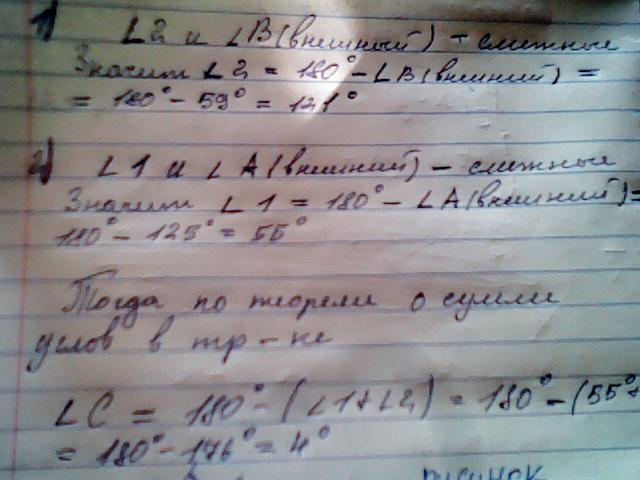 1) ∠2 и ∠B(внешный) – смежные
Значит ∠2 = 180° – ∠B(внешний) =
= 180° – 59° = 121°
2) ∠1 и ∠A(внешний) – смежные
Значит ∠1 = 180° – ∠A(внешний) =
180° – 125° = 55°
Тогда по теореме о сумме
углов в тр-ке
∠C = 180° – (∠1+∠2) = 180° – (55°+
= 180° – 176° = 4°
рисунок